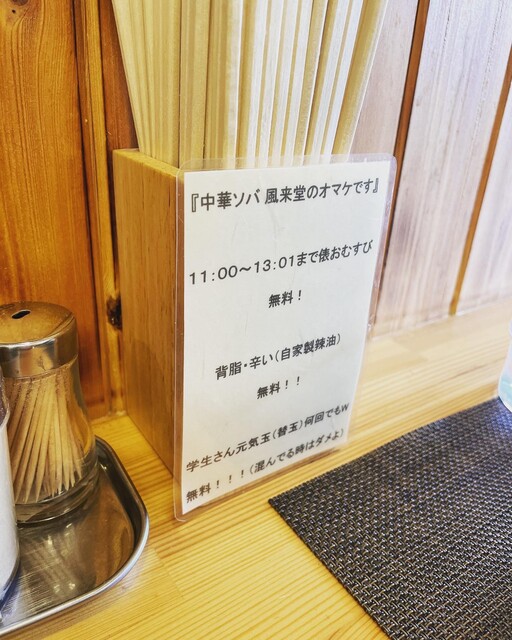 『中華ソバ 風来堂のオマケです』
11:00～13:01まで俵おむすび
無料！
背脂・辛い(自家製辣油)
無料！！
学生さん元気玉(替玉)何回でもW
無料！！！(混んでる時はダメよ)